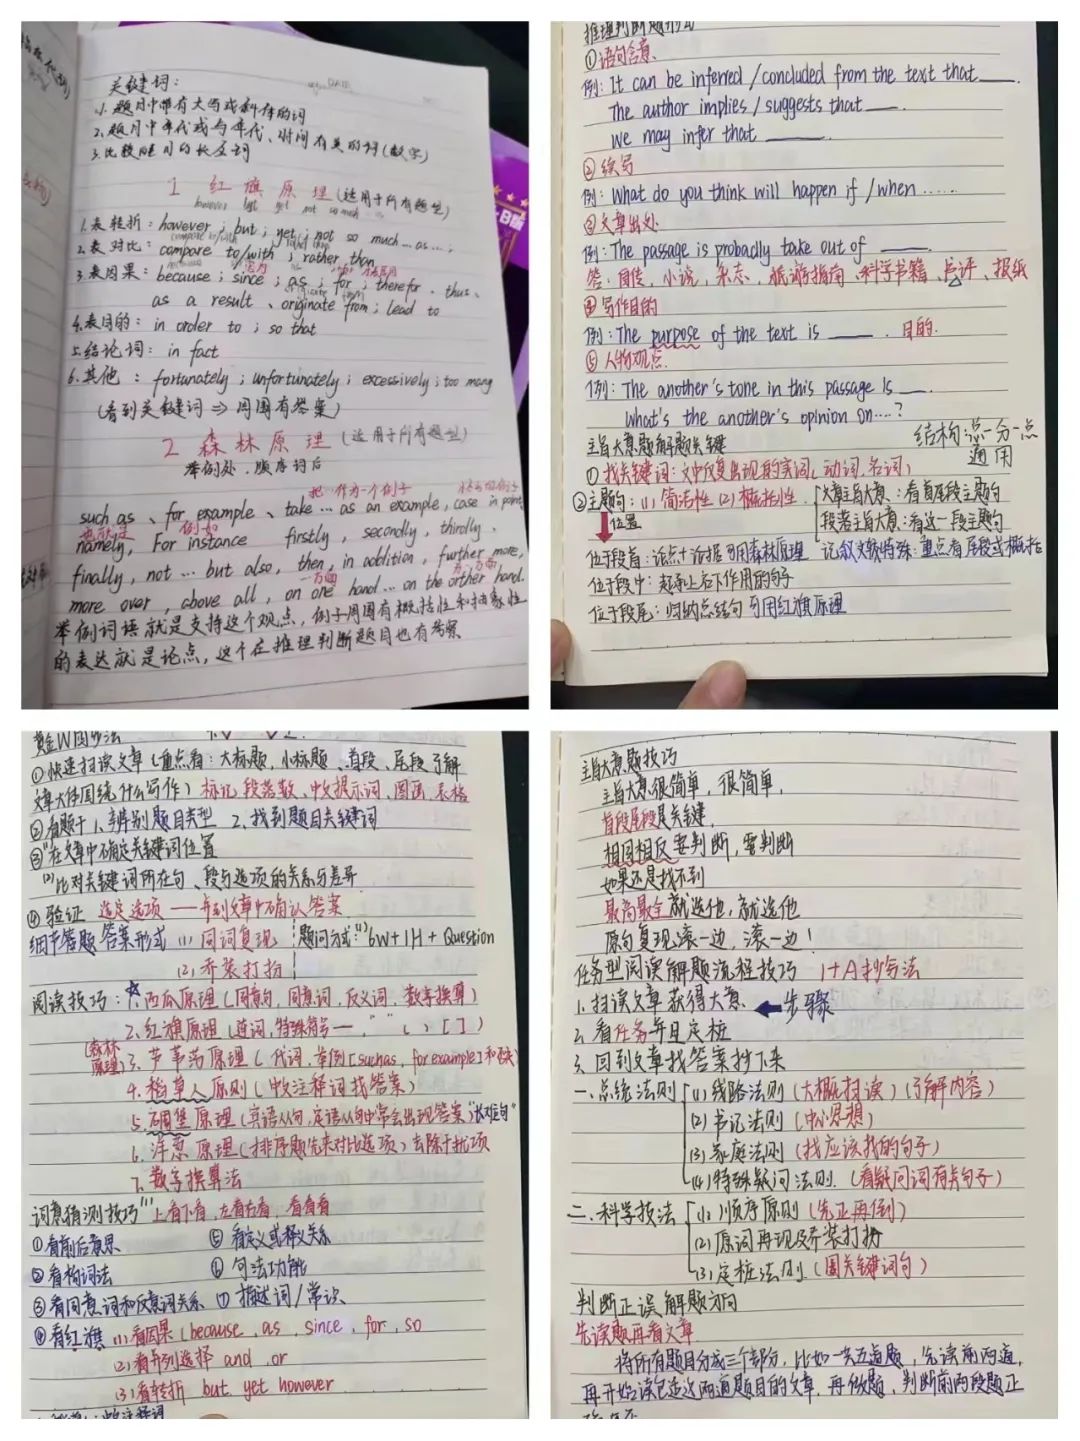 关键词：
1. 题目中带有大写或斜体的词
2. 题目中年代或与年代、时间有关的词(数字)
3. 比较醒目的长名词
1 红旗原理(适用于所有题型)
however but yet not so much
1. 表转折：however；but；yet；not so much…as…；
2. 表对比：compare to/with；rather than
3. 表因果：because；since；as；for；therefor. thus、
as a result、originate from；lead to
4. 表目的：in order to；so that
5. 结论词：in fact
6. 其他：fortunately；unfortunately；excessively；too many
(看到关键词⇒周围有答案)
2 森林原理(适用于所有题型)
举例处、顺序词后
把…作为一个例子
such as、for example、take…as an example, case in point,
例如
namely, For instance firstly, secondly, thirdly、
finally, not…but also, then, in addition, further more,
一方面
more over, above all, on one hand… on the orther hand.
举例词语就是支持这个观点，例子周围有概括性和抽象性
的表达就是论点，这个在推理判断题目也有考察
推理判断题形式
①语句含意
例：It can be inferred/concluded from the text that ____.
The author implies/suggests that ____.
We may infer that ____.
②续写
例：What do you think will happen if/when……
③文章出处
例：The passage is probadly take out of ____.
答：自传，小说，杂志，旅游指南、科学书籍、书评、报纸
④写作目的
例：The purpose of the text is ____. 目的.
⑤人物观点
例：The another's tone in this passage is ____.
What's the another's opinion on….?
主旨大意题解题关键
结构：总一分一总
通用
①找关键词：文中反复出现的实词(动词、名词)
②主题句：(1)简洁性 (2)概括性
文章主旨大意：看首尾段主题句
位置
段落主旨大意：看这一段主题句
位于段首：论点+论据 可用森林原理
记叙文较特殊：重点看尾段或概括
位于段中：起承上启下作用的句子
位于段尾：归纳总结句 可用红旗原理
黄金W同步法
①快速扫读文章(重点看：大标题，小标题、首段、尾段了解
文章大体围绕什么写作) 标记段落数、中文提示词，图画、表格
②看题干 1、辨别题目类型 2、找到题目关键词
③(1)在文章中确定关键词位置
(2)比对关键词所在句、段与选项的关系与差异
④验证 选定选项——再到文章中确认答案
细节答题 答案形式 (1)同词复现
题问方式：6W+1H+Question
(2)乔装打扮
阅读技巧：☆1.西瓜原理(同意句，同意词，反义词，数字换算)
2. 红旗原理(连词，特殊符号—，“ ” ( ) [ ])
(森林原理)
3. 芦苇荡原理(代词，举例[such as, for example]和因果)
4. 稻草人原则(中文注释词找答案)
5. 碉堡原理(宾语从句，定语从句中常会出现答案“长难句”
6. 洋葱原理(排序题先来对比选项)去除干扰项
7. 数字换算法
词意猜测技巧“上看下看，左看右看，看看看
①看前后意思
⑤看定义或释义关系
②看构词法
⑥句法功能
③看同意词和反意词关系
⑦描述词/常识
④看红旗 (1)看因果(because, as, since, for, so
(2)看并列选择 and, or
(3)看转折 but yet however
主旨大意题技巧
主旨大意很简单，很简单，
首段尾段是关键，
相同相反要判断，要判断
如果还是找不到
最高最全就选他，就选他
原句复现滚一边，滚一边！
任务型阅读解题流程技巧 1+A抄写法
1. 扫读文章获得大意 ← 步骤
2. 看任务并且定桩
3. 回到文章找答案抄下来
一、总统法则
(1)线路法则(大概扫读)(了解内容)
(2)书记法则(中心思想)
(3)家庭法则(找应该找的句子)
(4)特殊疑问法则.(看疑问词有关句子)
二、科学技法
(1)顺序原则(先正再倒)
(2)原词再现及乔装打扮
(3)定桩法则(圈关键词句)
判断正误解题方向
先读题再看文章
将所有题目分成三个部分，比如一共五道题，先读前两道，
再开始读包括这两道题目的文章，再做题，判断前两段题正